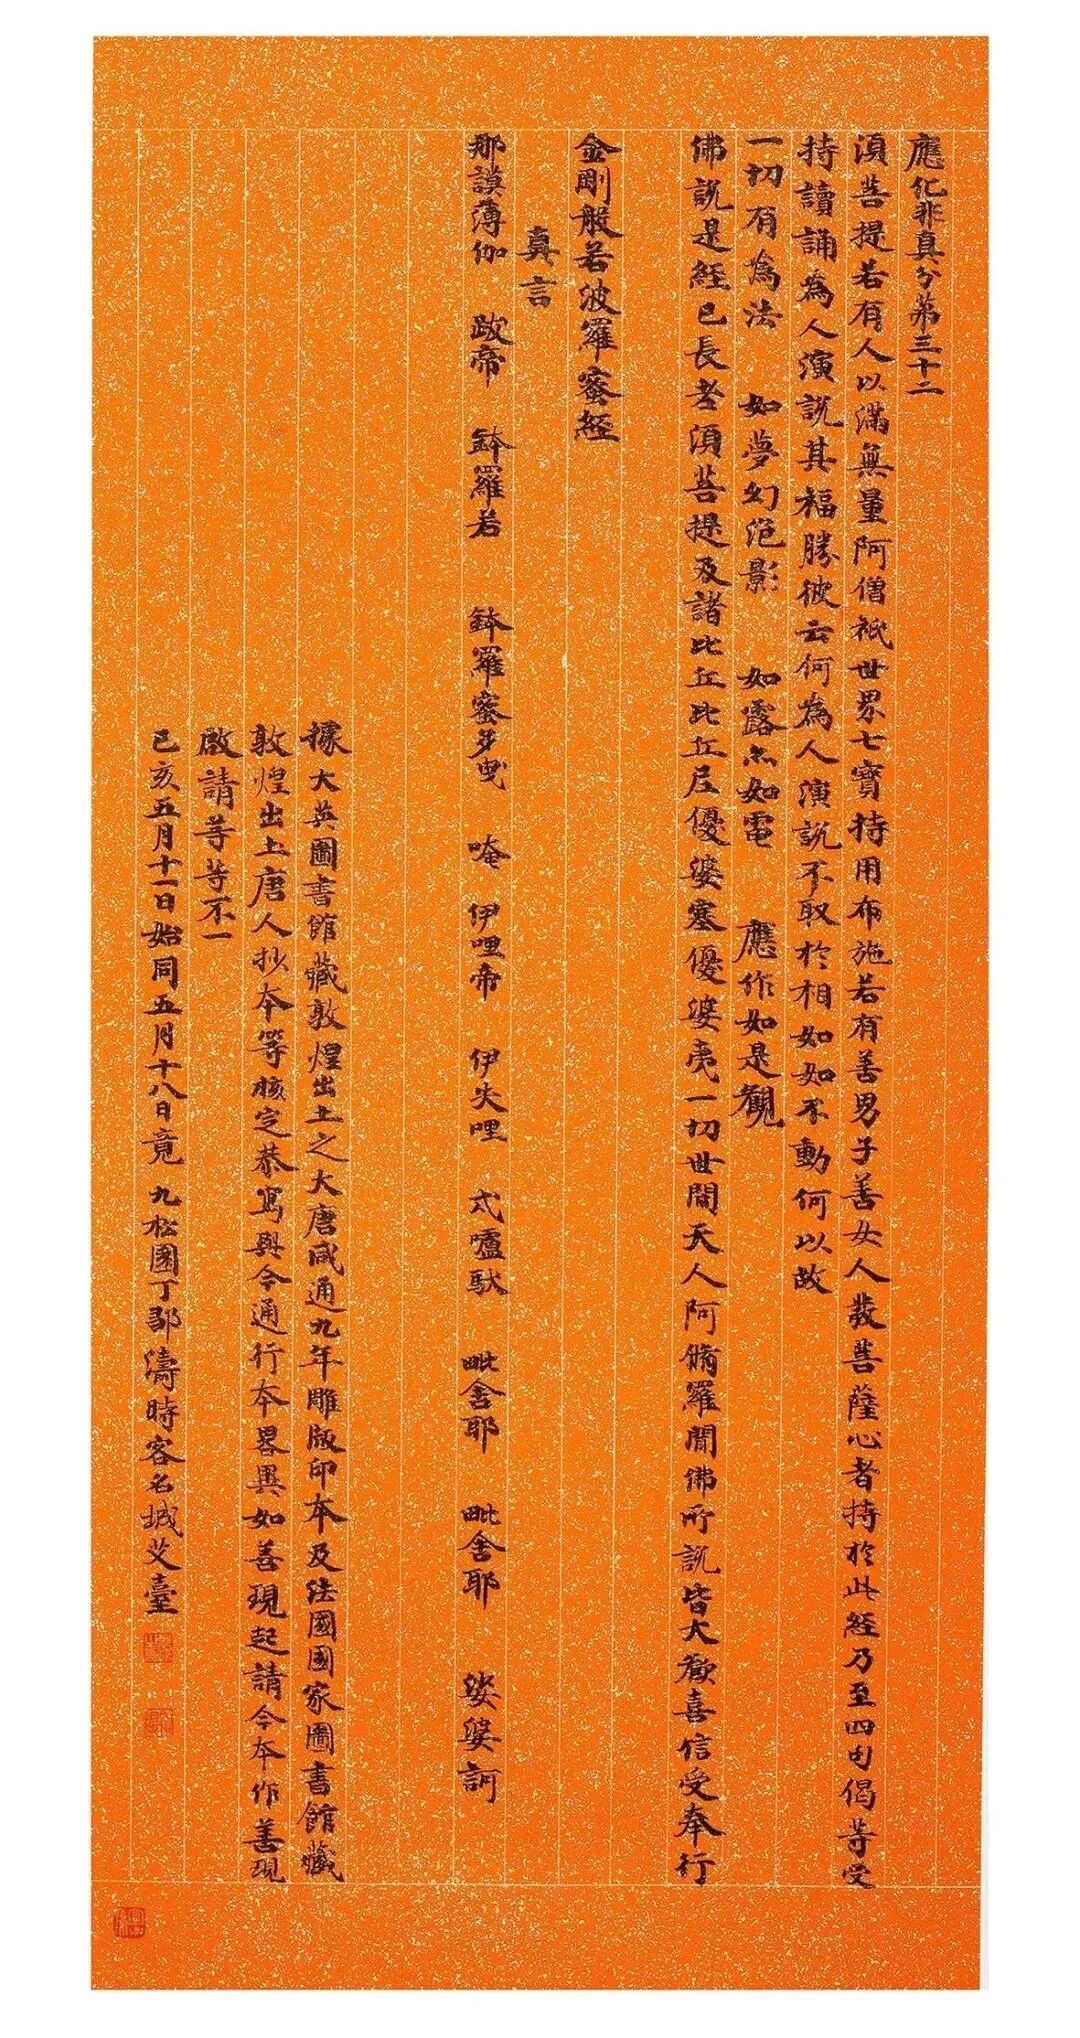 應化非真分第三十二
湏菩提若有人以滿無量阿僧祇世界七寶持用布施若有善男子善女人發菩薩心者持於此經乃至四句偈等受
持讀誦為人演說其福勝彼云何為人演說不取於相如如不動何以故
一切有為法 如夢幻泡影 如露亦如電 應作如是觀
佛說是經已長老湏菩提及諸比丘比丘尼優婆塞優婆夷一切世間天人阿脩羅聞佛所說皆大歡喜信受奉行
金剛般若波羅蜜經
真言
那謨薄伽 跋帝 鉢羅若 鉢羅蜜多曳 唵 伊哩帝 伊失哩 式嚧馱 毗舍耶 毗舍耶 娑婆訶
據大英圖書館藏敦煌出土之大唐咸通九年雕版印本及法國國家圖書館藏
敦煌出土唐人抄本等核定恭寫與今通行本畧異如善現起請今本作善現
啟請等等不一
己亥五月十一日始同五月十八日竟 九松園丁鄔濤時客名城艾臺